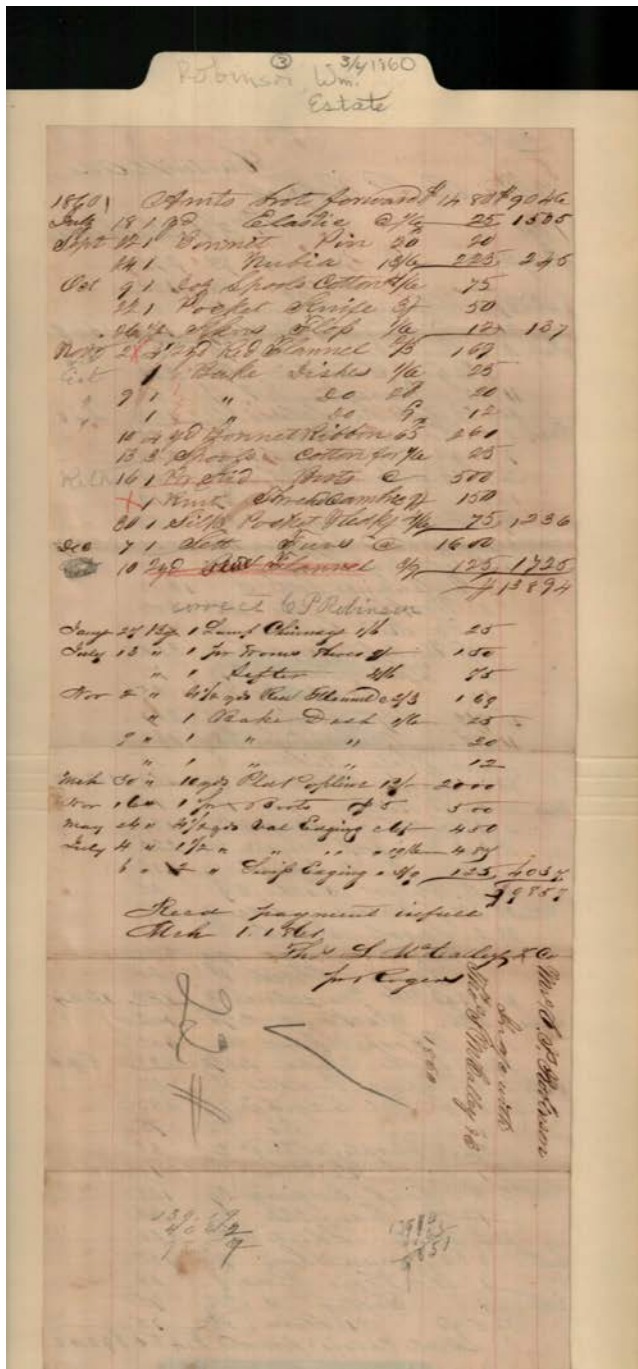 ③ 3/4/1860
Robinson, Wm.
Estate
1860 Amts brot forward $ 14 80 $ 90 46
July 18 1 yd Elastic @ 2/6 25 15 05
Sept 12 1 Bonnet Pin 20 20
14 1 Nubia 18/6 2 25 2 45
Oct 9 1 Doz Spools Cotton 6/6 75
22 1 Pocket Knife 50
Skeins Floss 1/6 12 1 37
Nov 2 yd Red Flannel 3/3 1 69
1 Bake Dishes 2/6 25
9 1 " Do 20 20
1 " Do 12
10 4 yd Bonnet Ribbon 65 2 60
13 3 Spools Cotton for 2/6 25
16 1 Pr Kid Boots @ 5 00
1 1 50
20 1 Silk Pocket Hdkf 6/6 75 12 36
Dec 7 1 Sett Furs @ 16 00
10 2 yd Red Flannel 1 25 17 25
$138 94
correct C P Robinson
Jany 27 1 Lamp Chimney 2/6 25
July 13 " 1 pr 1 50
" 1 Sifter 6/6 75
Nov 2 " 4 1/2 yds Red Flannel @ 3/3 1 69
" 1 Bake Dish 2/6 25
9 " 1 " " 20
" 1 " " 12
Mch 30 " 10 yds Plad Poplin 20 00
Nov 16 " 1 pr Boots $5 5 00
May 24 " 4 1/2 yds Val Edging 4 50
July 4 " 1 1/2 " " " 4 87
6 " 2 " Swiss Edging " 1 25 40 37
98 57
Recd payment in full
Mch 1. 1861
Thos S & Co
pr Rogers
Mrs Robinson
In a/c with
Thos S & Co
1860
22 #